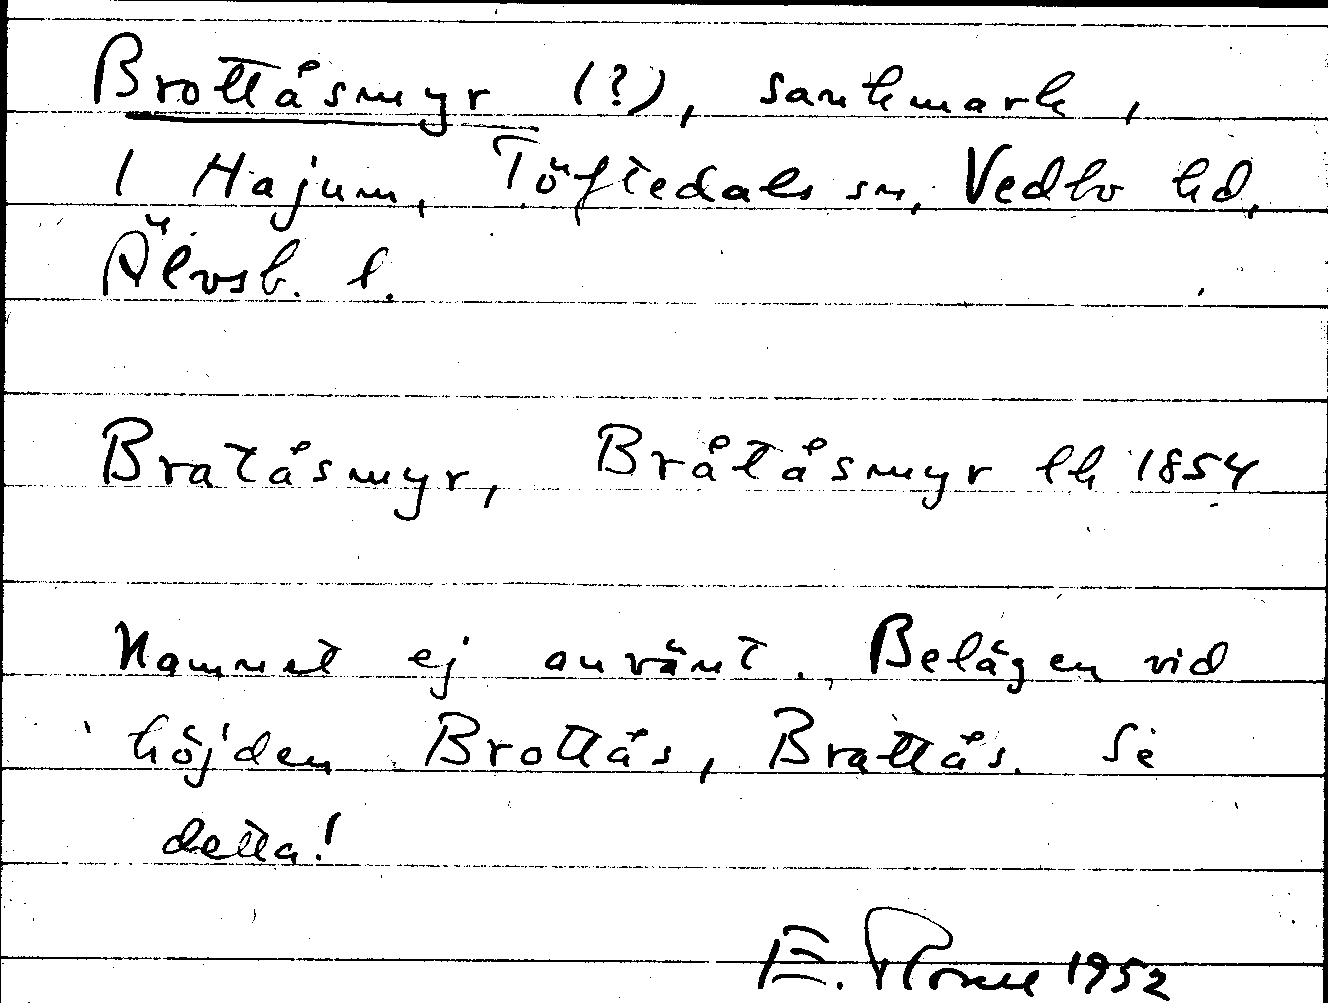 Brottåsmyr (?), sankmark,
1 Hajum, Töftedals sn, Vedbo hd,
Älvsb. l.
Bratåsmyr, Bråtåsmyr lh 1854
Namnet ej använt. Belägen vid
höjden Brottås, Brattås. Se
detta!
E. 1952